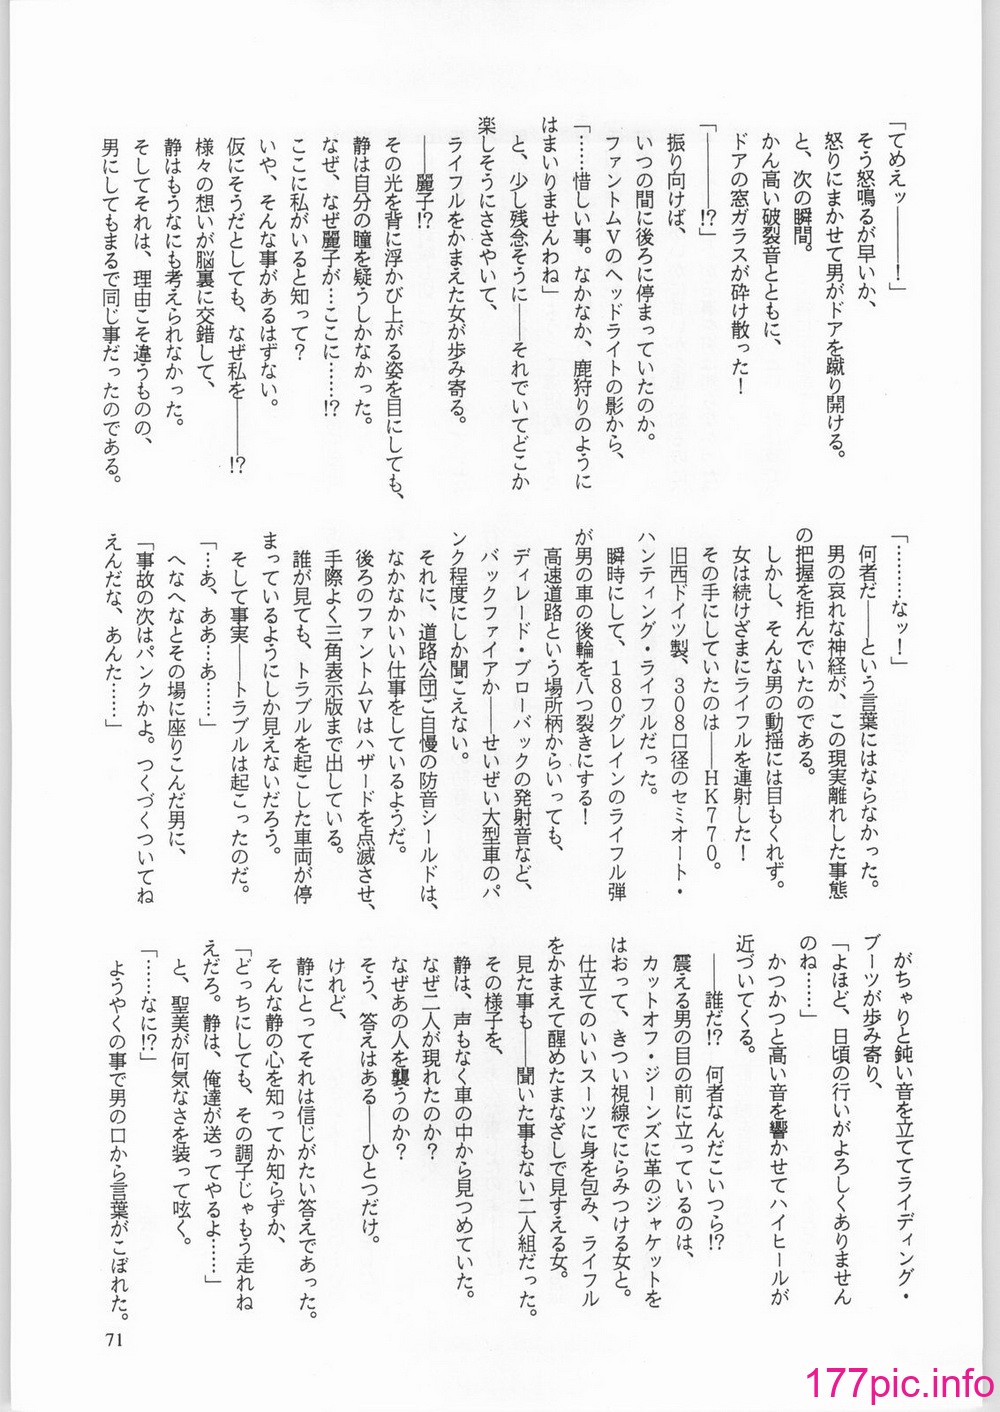 「てめえッ―――！」
そう怒鳴るが早いか、
怒りにまかせて男がドアを蹴り開ける。
と、次の瞬間。
かん高い破裂音とともに、
ドアの窓ガラスが砕け散った！
「―――!?」
振り向けば、
いつの間に後ろに停まっていたのか。
ファントムVのヘッドライトの影から、
「……惜しい事。なかなか、鹿狩りのように
はまいりませんわね」
と、少し残念そうに――それでいてどこか
楽しそうにささやいて、
ライフルをかまえた女が歩み寄る。
――麗子!?
その光を背に浮かび上がる姿を目にしても、
静は自分の瞳を疑うしかなかった。
なぜ、なぜ麗子が…ここに……!?
ここに私がいると知って？
いや、そんな事があるはずない。
仮にそうだとしても、なぜ私を―――!?
様々の想いが脳裏に交錯して、
静はもうなにも考えられなかった。
そしてそれは、理由こそ違うものの、
男にしてもまるで同じ事だったのである。
「………なッ！」
何者だ――という言葉にはならなかった。
男の哀れな神経が、この現実離れした事態
の把握を拒んでいたのである。
しかし、そんな男の動揺には目もくれず。
女は続けざまにライフルを連射した！
その手にしていたのは――HK770。
旧西ドイツ製、308口径のセミオート・
ハンティング・ライフルだった。
瞬時にして、180グレインのライフル弾
が男の車の後輪を八つ裂きにする！
高速道路という場所柄からいっても、
ディレード・ブローバックの発射音など、
バックファイアか――せいぜい大型車のパ
ンク程度にしか聞こえない。
それに、道路公団ご自慢の防音シールドは、
なかなかいい仕事をしているようだ。
後ろのファントムVはハザードを点滅させ、
手際よく三角表示版まで出している。
誰が見ても、トラブルを起こした車両が停
まっているようにしか見えないだろう。
そして事実――トラブルは起こったのだ。
「…あ、ああ…あ……」
へなへなとその場に座りこんだ男に、
「事故の次はパンクかよ。つくづくついてね
えんだな、あんた……」
がちゃりと鈍い音を立ててライディング・
ブーツが歩み寄り、
「よほど、日頃の行いがよろしくありません
のね……」
かつかつと高い音を響かせてハイヒールが
近づいてくる。
――誰だ!?　何者なんだこいつら!?
震える男の目の前に立っているのは、
カットオフ・ジーンズに革のジャケットを
はおって、きつい視線でにらみつける女と。
仕立てのいいスーツに身を包み、ライフル
をかまえて醒めたまなざしで見すえる女。
見た事も――聞いた事もない二人組だった。
その様子を、
静は、声もなく車の中から見つめていた。
なぜ二人が現れたのか？
なぜあの人を襲うのか？
そう、答えはある――ひとつだけ。
けれど、
静にとってそれは信じがたい答えであった。
そんな静の心を知ってか知らずか、
「どっちにしても、その調子じゃもう走れね
えだろ。静は、俺達が送ってやるよ……」
と、聖美が何気なさを装って呟く。
「……なに!?」
ようやくの事で男の口から言葉がこぼれた。
71
177pic.info